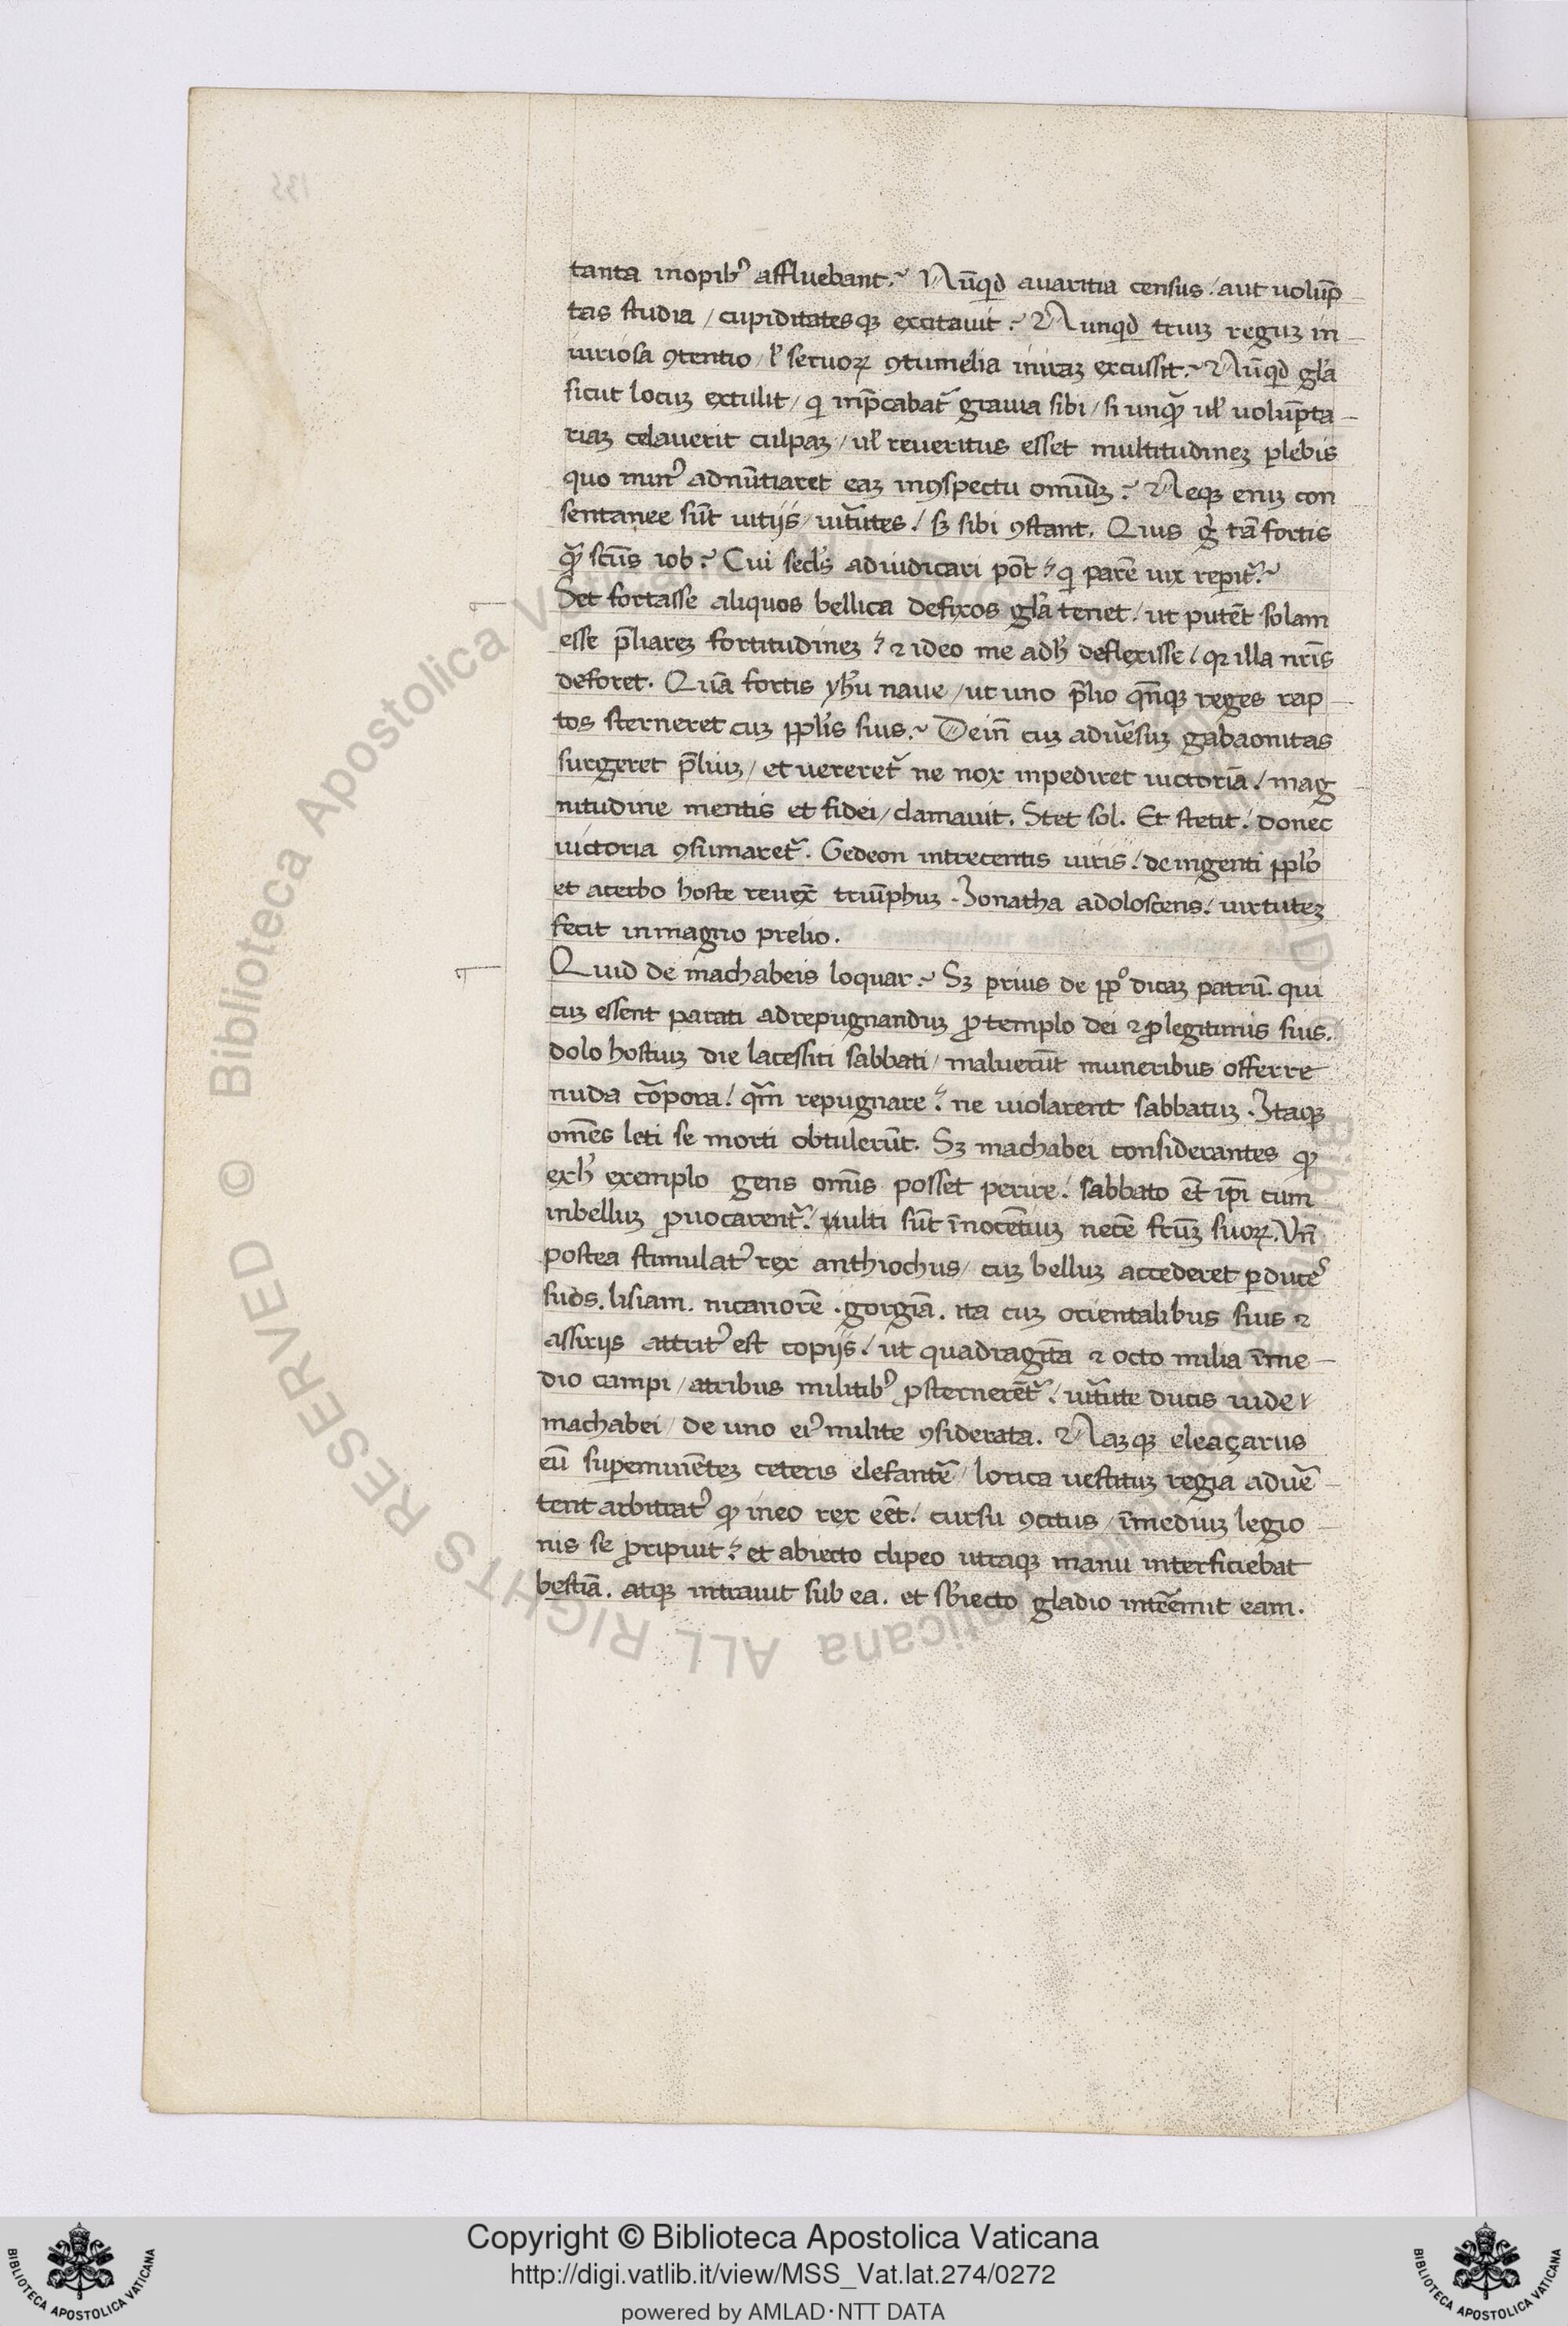 tanta inopib⁹ affluebant.~ Nūqd avaritia census / aut uolup̄
tas studia / cupiditatesqꝫ excitauit.~ Nunqd triuꝫ reguꝫ in
iuriosa ꝯtentio / ł seruoꝝ ꝯtumelia iniuraꝫ excussit.~ Nūqd gla
sicut locuꝫ extulit / q̇ inp̄cabat̉ grauia sibi / si unq̄ꝫ uł uolup̄ta
riaꝫ celauerit culpaꝫ / uł reueritus esset multitudineꝫ plebis
quo min⁹ adnūtiaret eaꝫ inꝯspectu omniuꝫ.~ Neqꝫ eniꝫ con
sentanee sūt uitijs / uir̄tutes / sꝫ sibi ꝯstant. Quis g̊ tā fortis
q̄ꝫ scūs iob.~ Cui secds adiudicari pōt / q̇ parē uix reperit̉.~
Set fortasse aliquos bellica defixos gla tenet / ut putēt solam
esse p̄liareꝫ fortitudineꝫ / ⁊ ideo me adh̉ deflexisse / qꝛ illa nr̄is
deforet. Quā fortis yhu naue / ut uno p̄lio qn̄qꝫ reges cap
tos sterneret cuꝫ pplis suis.~ Dein̄ cuꝫ aduersuꝫ gabaonitas
surgeret p̄liuꝫ / et uereret̉ ne nox inpediret uictoriā / mag
nitudine mentis et fidei / clamauit. Stet sol. Et stetit / donec
uictoria ꝯsumaret̉. Gedeon intrecentis uiris / de ingenti pplo
et acerbo hoste reuex̄ triūphuꝫ. Jonatha adoloscens / uirtuteꝫ
fecit inmagno prelio.
Quid de machabeis loquar.~ Sꝫ prius de ppº dicaꝫ patrū. qui
cuꝫ essent parati adrepugnanduꝫ ꝓ templo dei ⁊ ꝓ legitimis suis.
dolo hostiuꝫ die lacessiti sabbati / maluerūt muneribus offerre
nuda corpora / qm̄ repugnare / ne uiolarent sabbatuꝫ. Itaqꝫ
omēs leti se morti obtulerūt. Sꝫ machabei considerantes qꝫ
exh̉ exemplo gens omīs posset perire / sabbato ēt ip̄i cum
inbelluꝫ ꝓuocarent̉. / ulti sūt īnocētiuꝫ necē frūꝫ suoꝝ. Vn̄
postea stimulat⁹ rex anthiochus / cuꝫ belluꝫ accederet ꝑ duce⁹
suos. lisiam. nicanorē. gorgiā. ita cuꝫ orientalibus suis ⁊
assirijs attrit⁹ est copijs / ut quadragīta ⁊ octo milia īme
dio campi / atribus militib⁹ ꝓsternerēt̉ / uir̄tute ducis iude
machabei / de uno ei⁹ milite ꝯsiderata. Naꝫqꝫ eleaçarus
eū supeminēteꝫ ceteris elefantē / lorica uestituꝫ regia aduē
tent arbitrat⁹ qꝫ ineo rex eēt / cursu ꝯcitus / īmediuꝫ legio
nis se ꝓripiuit / et abiecto clipeo utraqꝫ manu interficiebat
bestiā. atqꝫ intrauit sub ea. et sbiecto gladio intēemit eam.
Copyright © Biblioteca Apostolica Vaticana
http://digi.vatlib.it/view/MSS_Vat.lat.274/0272
powered by AMLAD·NTT DATA